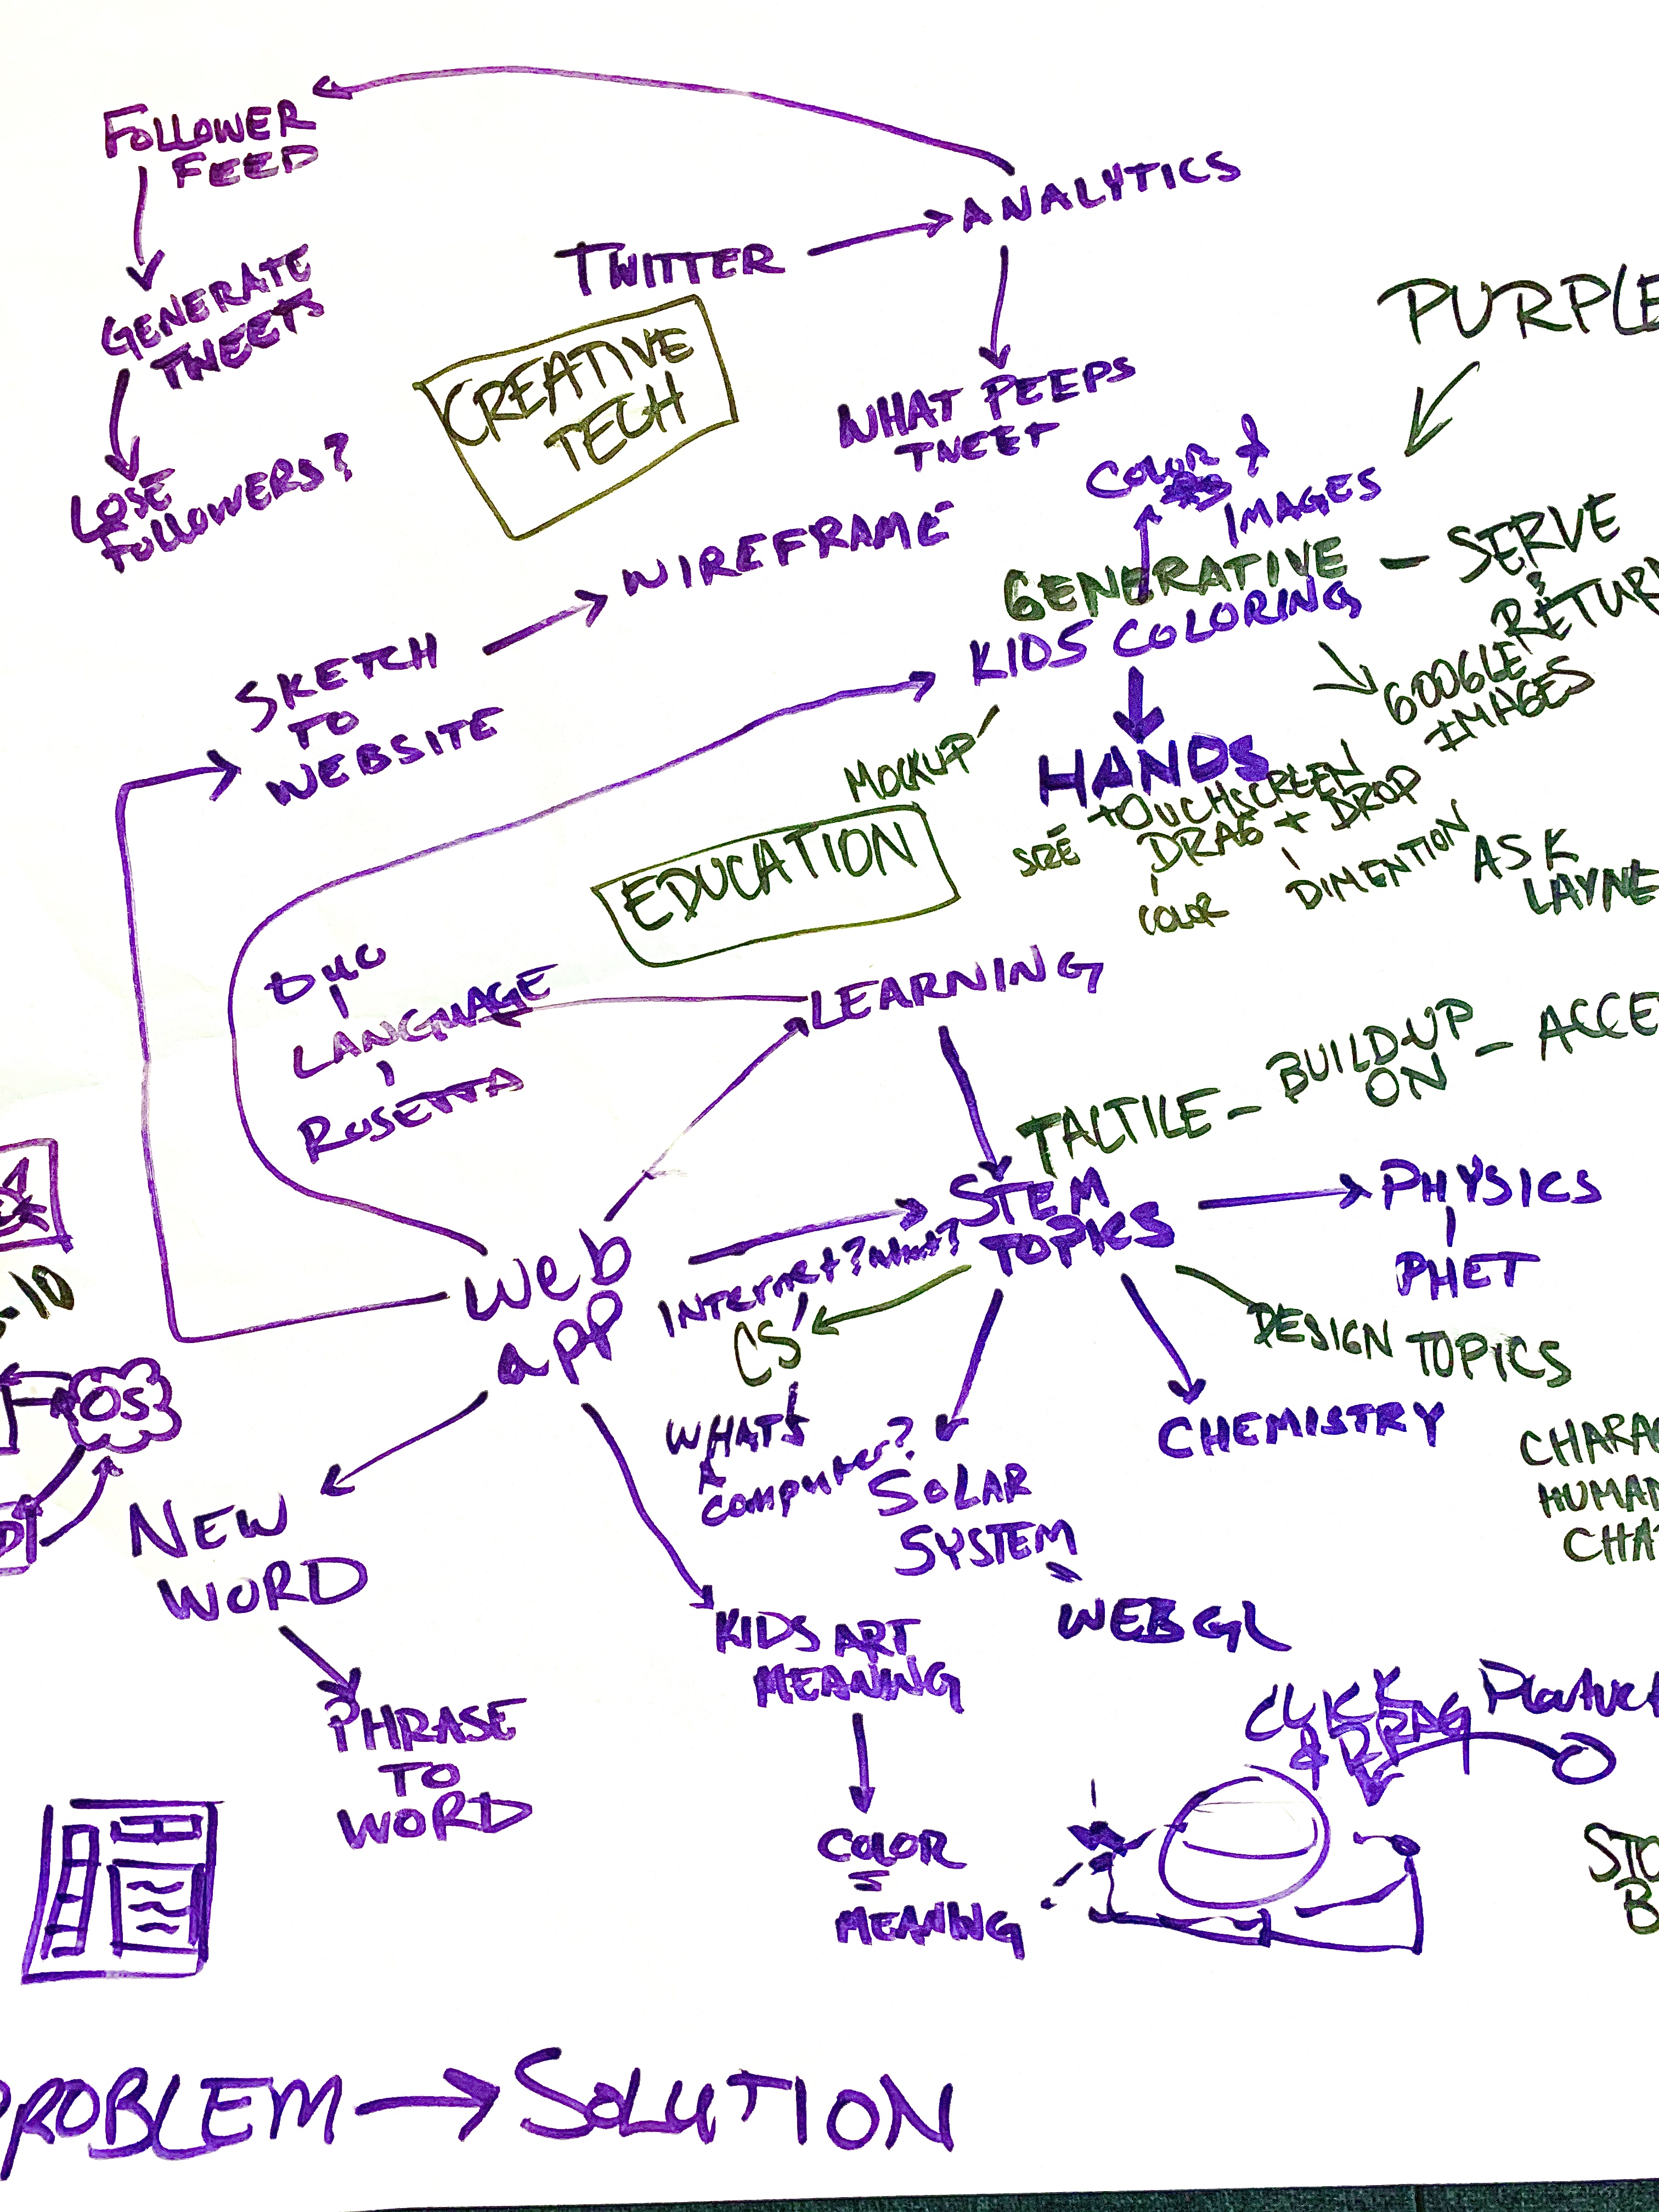 FOLLOWER
FEED
ANALYTICS
TWITTER
GENERATE
TWEETS
CREATIVE
TECH
PURPLE
WHAT PEEPS
TWEET
LOSE
FOLLOWERS?
COLOR &
IMAGES
WIREFRAME
GENERATIVE - SERVE
&
RETURN
KIDS COLORING
SKETCH
TO
WEBSITE
GOOGLE
IMAGES
MOCKUP
HANDS
TOUCHSCREEN
SIZE
DRAG + DROP
COLOR
DIMENTION
ASK
LAYNE
EDUCATION
DUO
LANGUAGE
ROSETTA
LEARNING
TACTILE - BUILD-UP - ACCE
ON
STEM
TOPICS
PHYSICS
PHET
web
app
INTERNET? WHAT?
CS
DESIGN TOPICS
-10
OS
WHATS
A
COMPUTER?
SOLAR
SYSTEM
CHEMISTRY
CHARA
HUMAN
CHA
NEW
WORD
WEBGL
KIDS ART
MEANING
PHRASE
TO
WORD
CLICK
& DRAG
COLOR
=
MEANING
STO
B
PROBLEM → SOLUTION